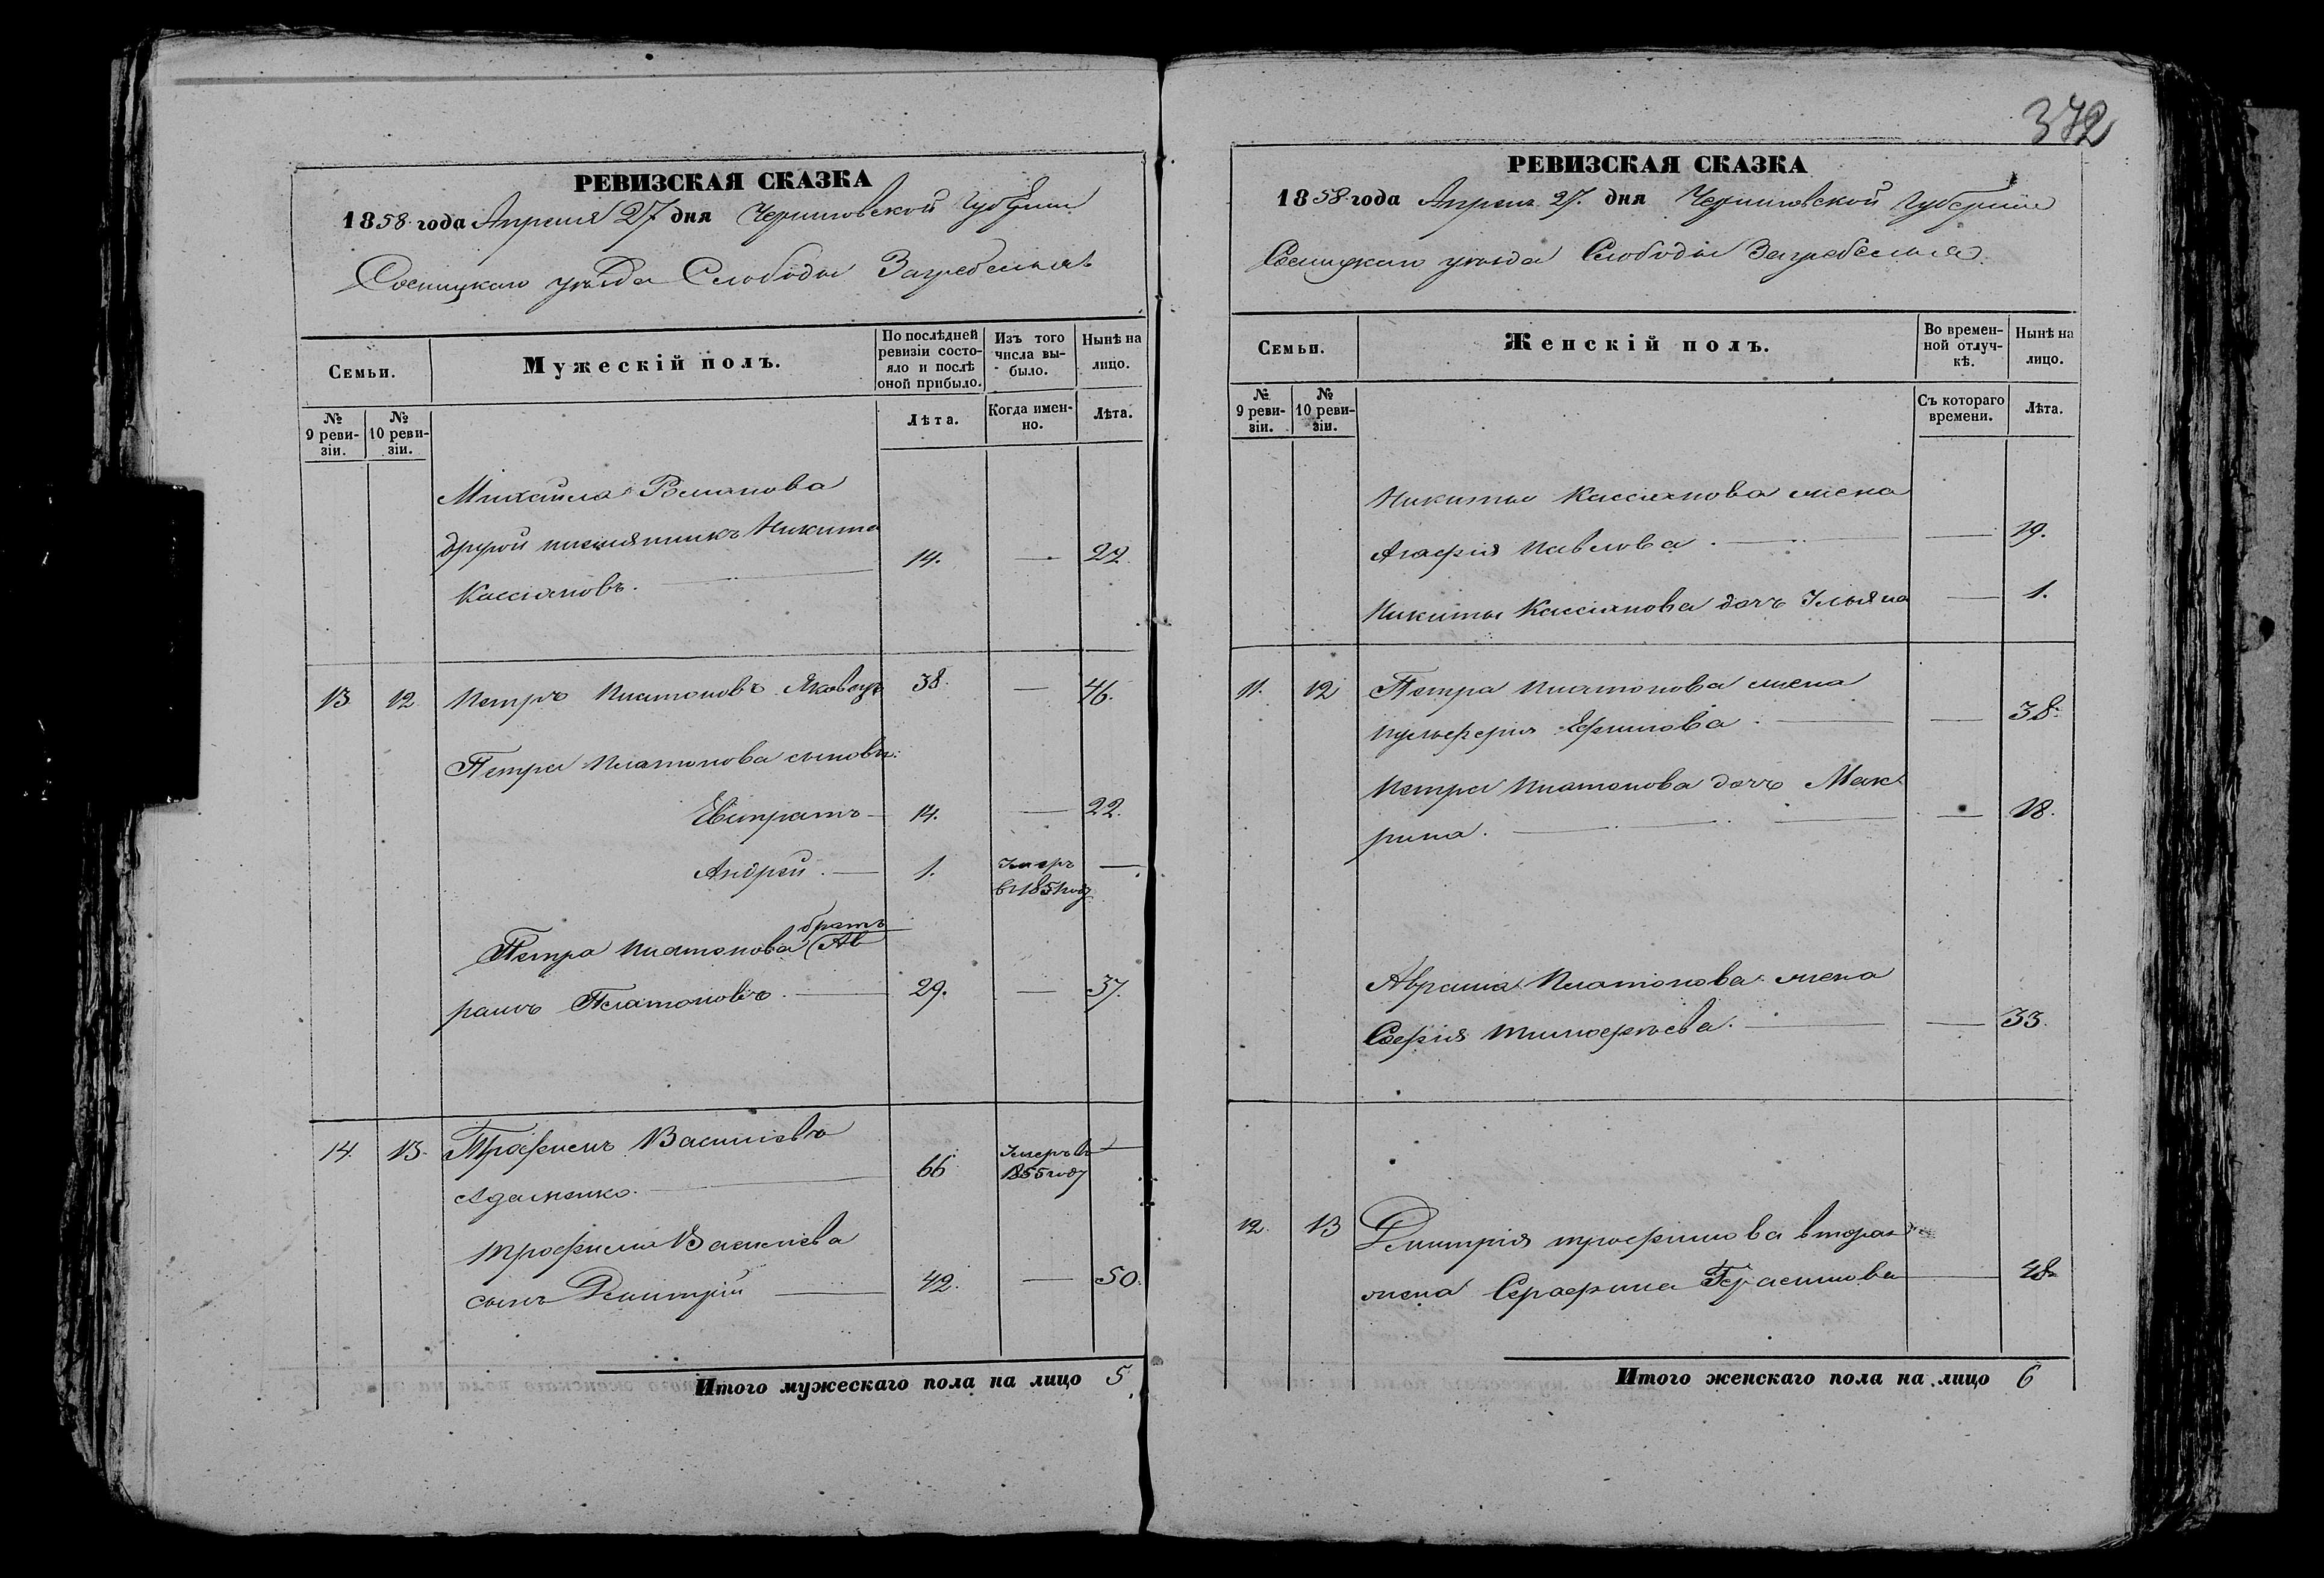 РЕВИЗСКАЯ СКАЗКА
1858 года Апреля 27 дня Черниговской Губернии
Сосницкаго уѣзда Слободы Загребелья
Семьи.
Мужескій полъ.
По послѣдней ревизіи состояло и послѣ оной прибыло.
Изъ того числа выбыло.
Нынѣ на лицо.
№ 9 ревизіи.
№ 10 ревизіи.
Лѣта.
Когда именно.
Лѣта.
Михайла Романова
другой племянникъ Никита
Кассіяновъ. 14. — 22.
13 12 Петръ Платоновъ 38. — 46.
Петра Платонова сыновья:
Евстратъ — 14. — 22.
Андрей. — 1. Умеръ —
въ 1851 году
братъ
Петра Платонова Ав
рамъ Платоновъ. 29. — 37.
14. 13. Трофимъ Васильевъ
Адаменко. 66 Умеръ въ 1855 году —
Трофима Васильева
сынъ Димитрій — 42. — 50.
Итого мужескаго пола на лицо 5
372
РЕВИЗСКАЯ СКАЗКА
1858 года Апреля 27. дня Черниговской Губернии
Сосницкаго уѣзда Слободы Загребелья.
Семьи.
Женскій полъ.
Во временной отлучкѣ.
Нынѣ на лицо.
№ 9 ревизіи.
№ 10 ревизіи.
Съ котораго времени.
Лѣта.
Никиты Кассіянова жена
Агафия Павлова. — 19.
Никиты Кассіянова дочь Ульяна — 1.
11. 12 Петра Платонова жена
Пульферия Ефимова. — 38.
Петра Платонова дочь Мак
рина. — 18.
Аврама Платонова жена
София Тимофеева. — 33.
12. 13 Димитрія Трофимова вторая
жена Серафима Герасимова — 48
Итого женскаго пола на лицо 6